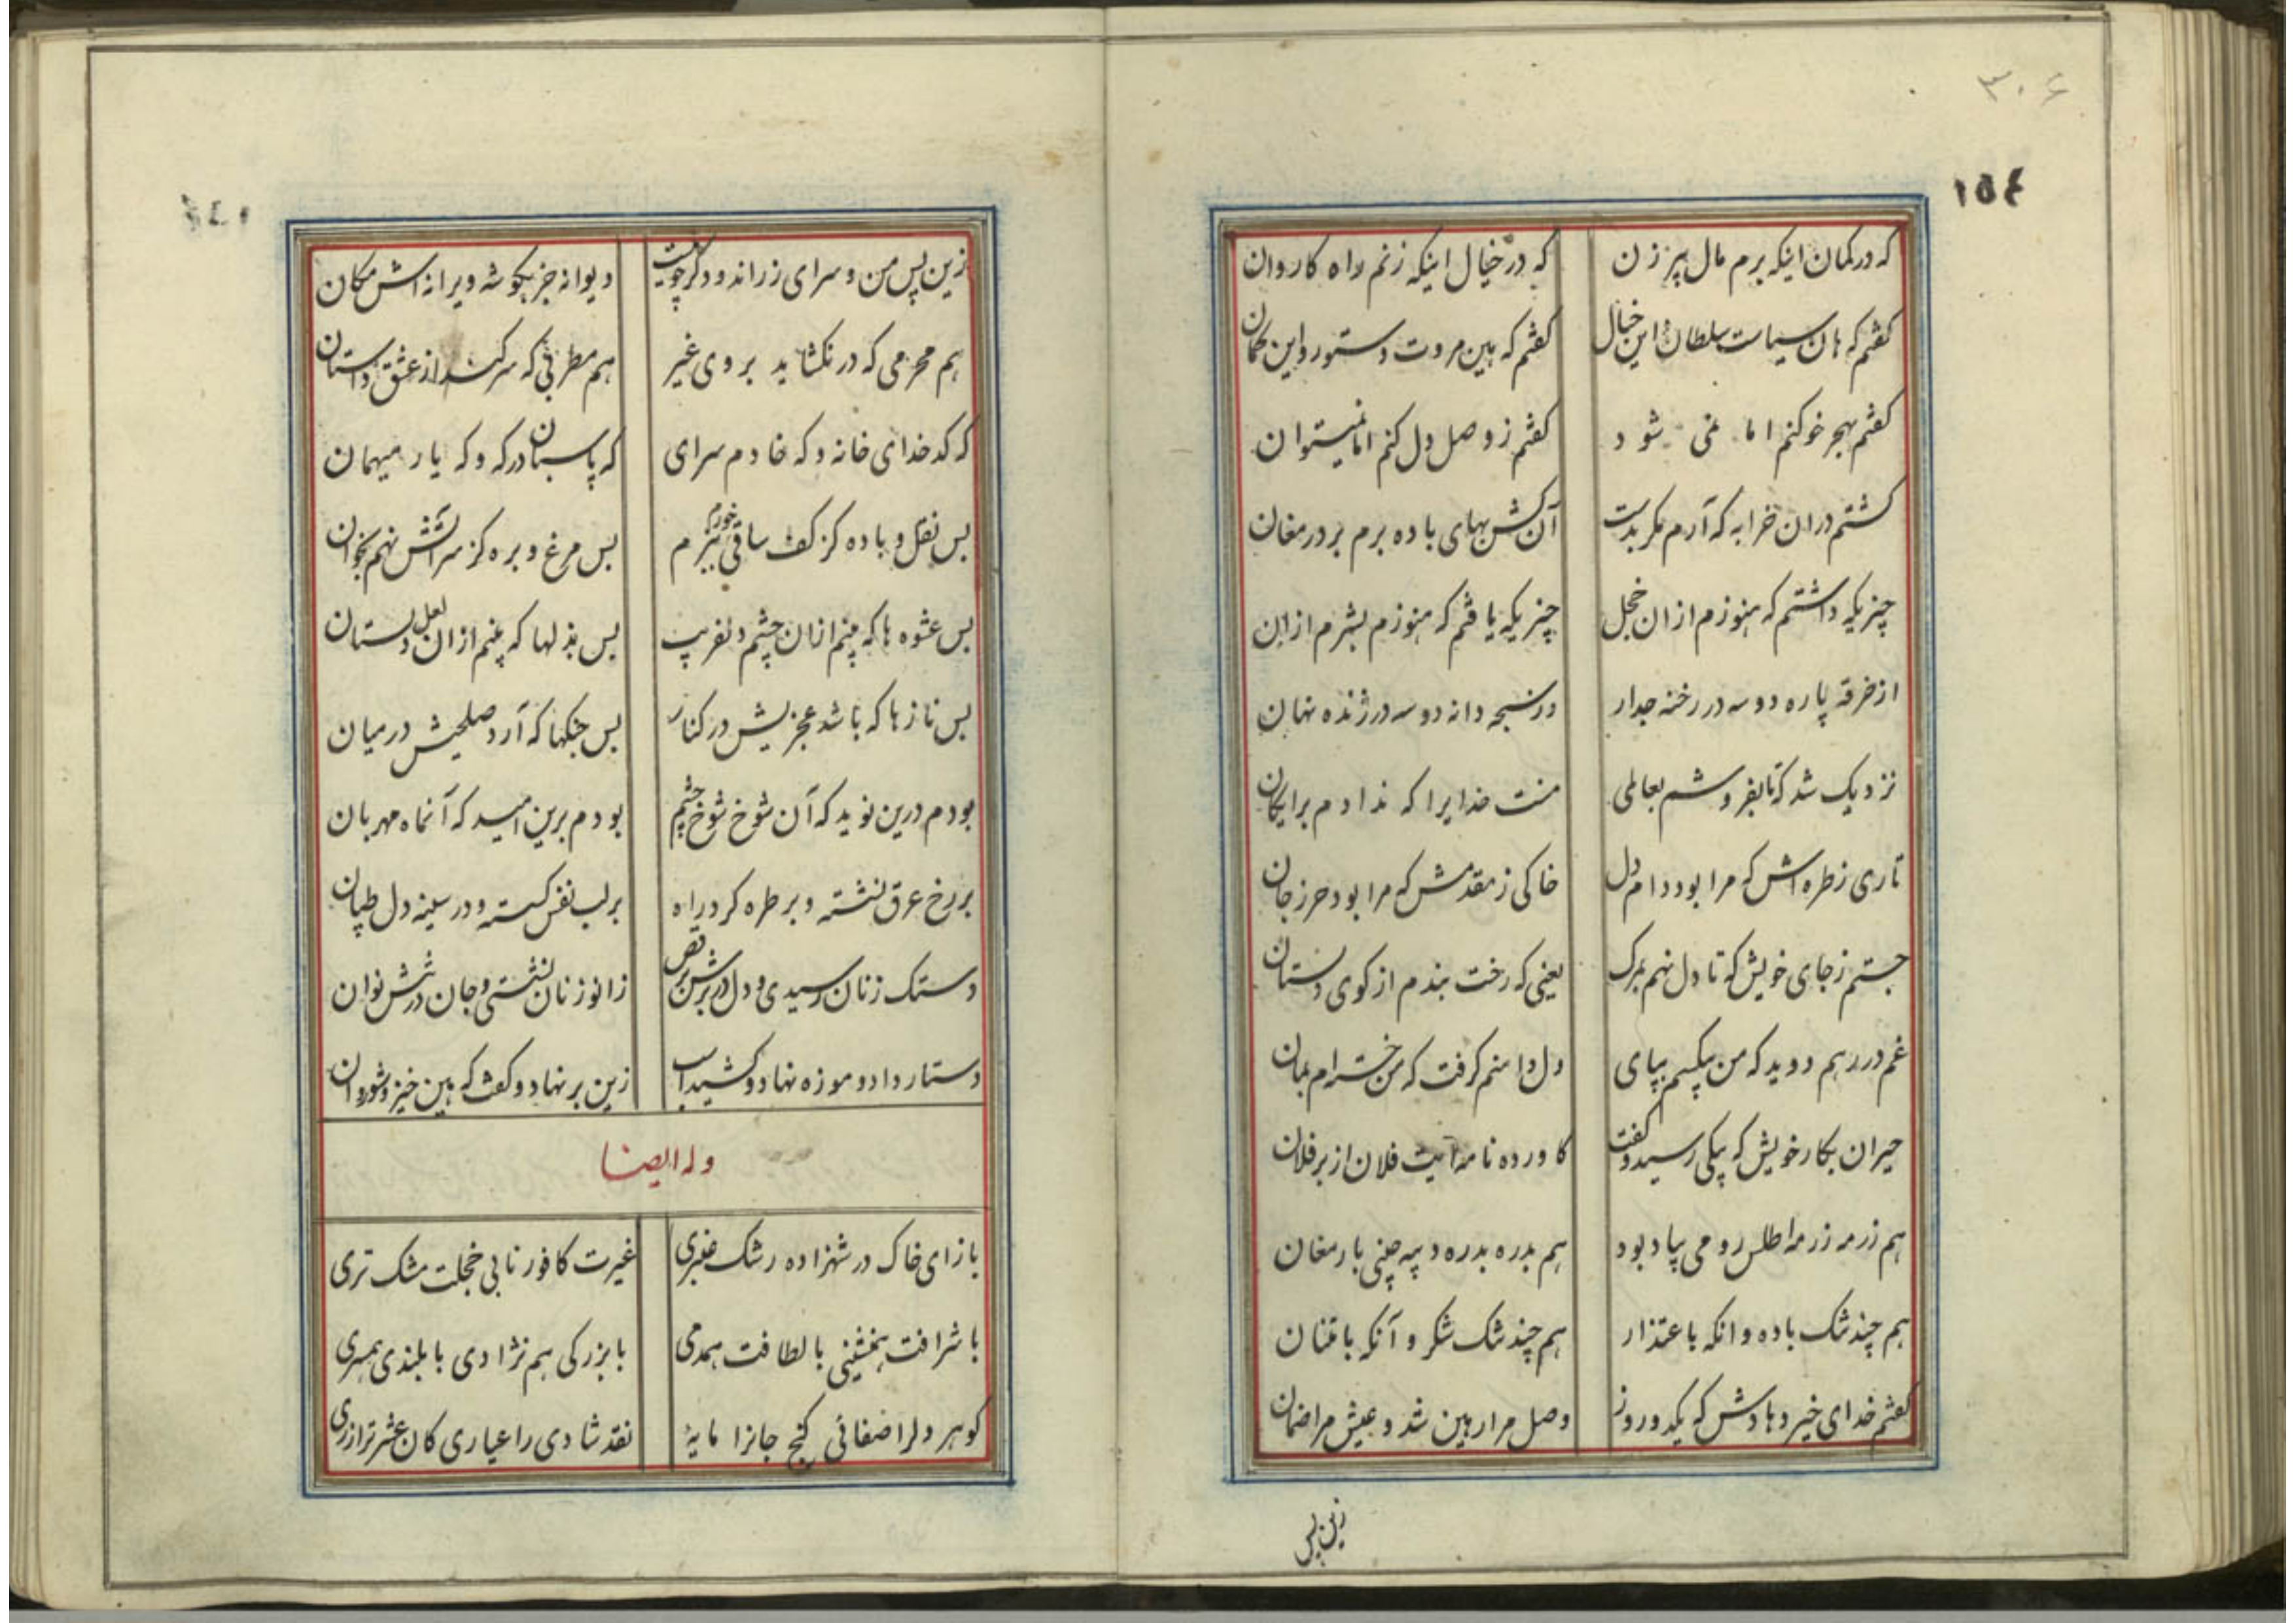 ۳۰۶
۱۵۴
که در کمان اینکه برم مال پیرزن که در خیال اینکه زنم راه کاروان
کفتم که هان سیاست سلطان و این خیال کفتم که هین مروت دستور و این کمان
کفتم بهجر خو کنم اما نمی شود کفتم ز وصل دل کنم اما نمیتوان
کشتم دران خرابه که آرم مکر بدست آن کش بهای باده برم بر در مغان
چیزیکه داشتم که هنوزم ازان خجل چیزیکه یافتم که هنوزم بشرم ازان
از خرقه پاره دو سه در رخنه جدار وز سبحه دانه دو سه در ژنده نهان
نزدیک شد که تا بفروشم بعاملی منت خدایرا که ندادم برایکان
تاری ز طره اش که مرا بود دام دل خاکی ز مقدمش که مرا بود حرز جان
جستم ز جای خویش که تا دل نهم بمرک یعنی که رخت بندم از کوی دلستان
غم در رهم دوید که من بیکسم بپای دل دامنم کرفت که من خسته ام بمان
حیران بکار خویش که پیکی رسید و کفت کاورده نامه ایت فلان از بر فلان
هم زرمه زرمه اطلس رومی بیادبود هم بدره بدره دیبه چینی بارمغان
هم چند تنک باده و انکه باعتذار هم چند تنک شکر و آنکه بامتنان
کفتم خدای خیر دهادش که یکدو روز وصل مرا رهین شد و عیش مرا ضمان
زین پس
زین پس من و سرای زراندود کرچه نیست دیوانه جز بکوشه ویرانه اش مکان
هم محرمی که در نکشاید بروی غیر هم مطربی که سر کند از عشق داستان
که کدخدای خانه و که خادم سرای که پاسبان درکه و که یار میهمان
بس نقل و باده کز کف ساقی خورم ببزم بس مرغ و بره کز سر آتش نهم بخوان
بس عشوه ها که بینم ازان چشم دلفریب بس بذلها که چینم ازان لعل دلستان
بس نازها که باشد عجزیش در کنار بس جنکها که آرد صلحیش در میان
بودم درین نوید که آن شوخ شوخ چشم بودم برین امید که آنماه مهربان
بر رخ عرق نشسته و بر طره کرد راه بر لب نفس کسسته و در سینه دل طپان
دستک زنان رسیدی و دل در برش برقص زانو زنان نشستی و جان در تنش نوان
دستار داد و موزه نهاد و کشید اسب زین بر نهاد و کفت که هین خیز و شو روان
وله ایضا
باز ای خاک در شهزاده رشک عنبری غیرت کافور نابی خجلت مشک تری
با شرافت همنشینی با لطافت همدمی با بزرکی هم نژادی با بلندی همسری
کوهر دلرا صفائی کنج جانرا مایهٔ نقد شادی را عیاری کان عشرترا زری